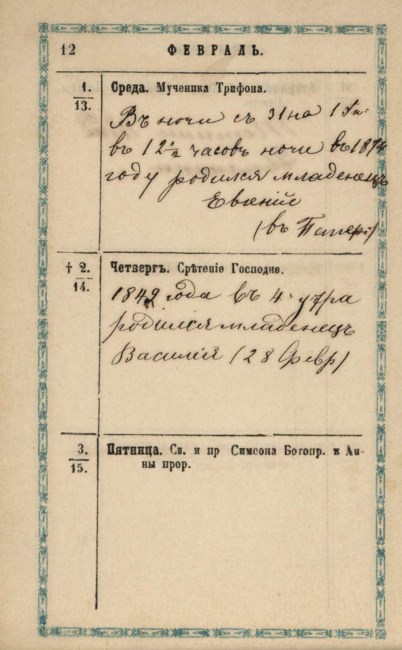 12 ФЕВРАЛЬ.
1.
13.
Среда. Мученика Трифона.
Въ ночи съ 31 на 1 Ян.
въ 12 ½ часовъ ночи въ 1874
году родился младенецъ
Евгений
(въ
† 2.
14.
Четвергъ. Срѣтеніе Господне.
1842 года въ 4. утра
родился младенецъ
Василія (28 Февр)
3.
15.
Пятница. Св. и пр Симеона Богопр. и Ан-
ны прор.